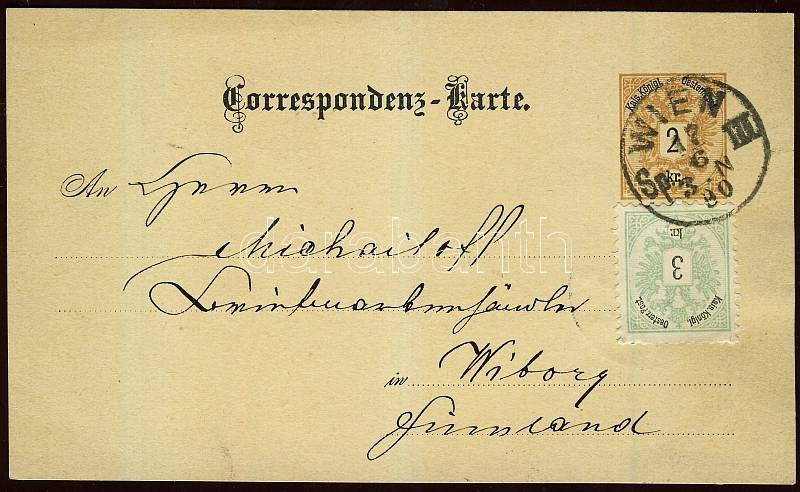 Correspondenz-Karte.
Kais. Königl. Oesterr.
2
kr.
WIEN III.
17
6
3 N
90
An Herrn
Michailoff
Briefmarkenhändler
in Wiborg
Finnland
3
kr.
Kais. Königl.
Oesterr. Post.
darabanth